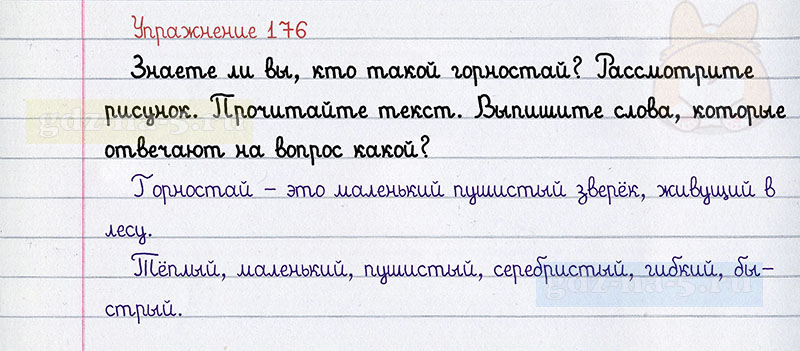 Упражнение 176
Знаете ли вы, кто такой горностай? Рассмотрите
рисунок. Прочитайте текст. Выпишите слова, которые
отвечают на вопрос какой?
Горностай – это маленький пушистый зверёк, живущий в
лесу.
Тёплый, маленький, пушистый, серебристый, гибкий, бы–
стрый.
gdz-na-5.ru
gdz-na-5.ru